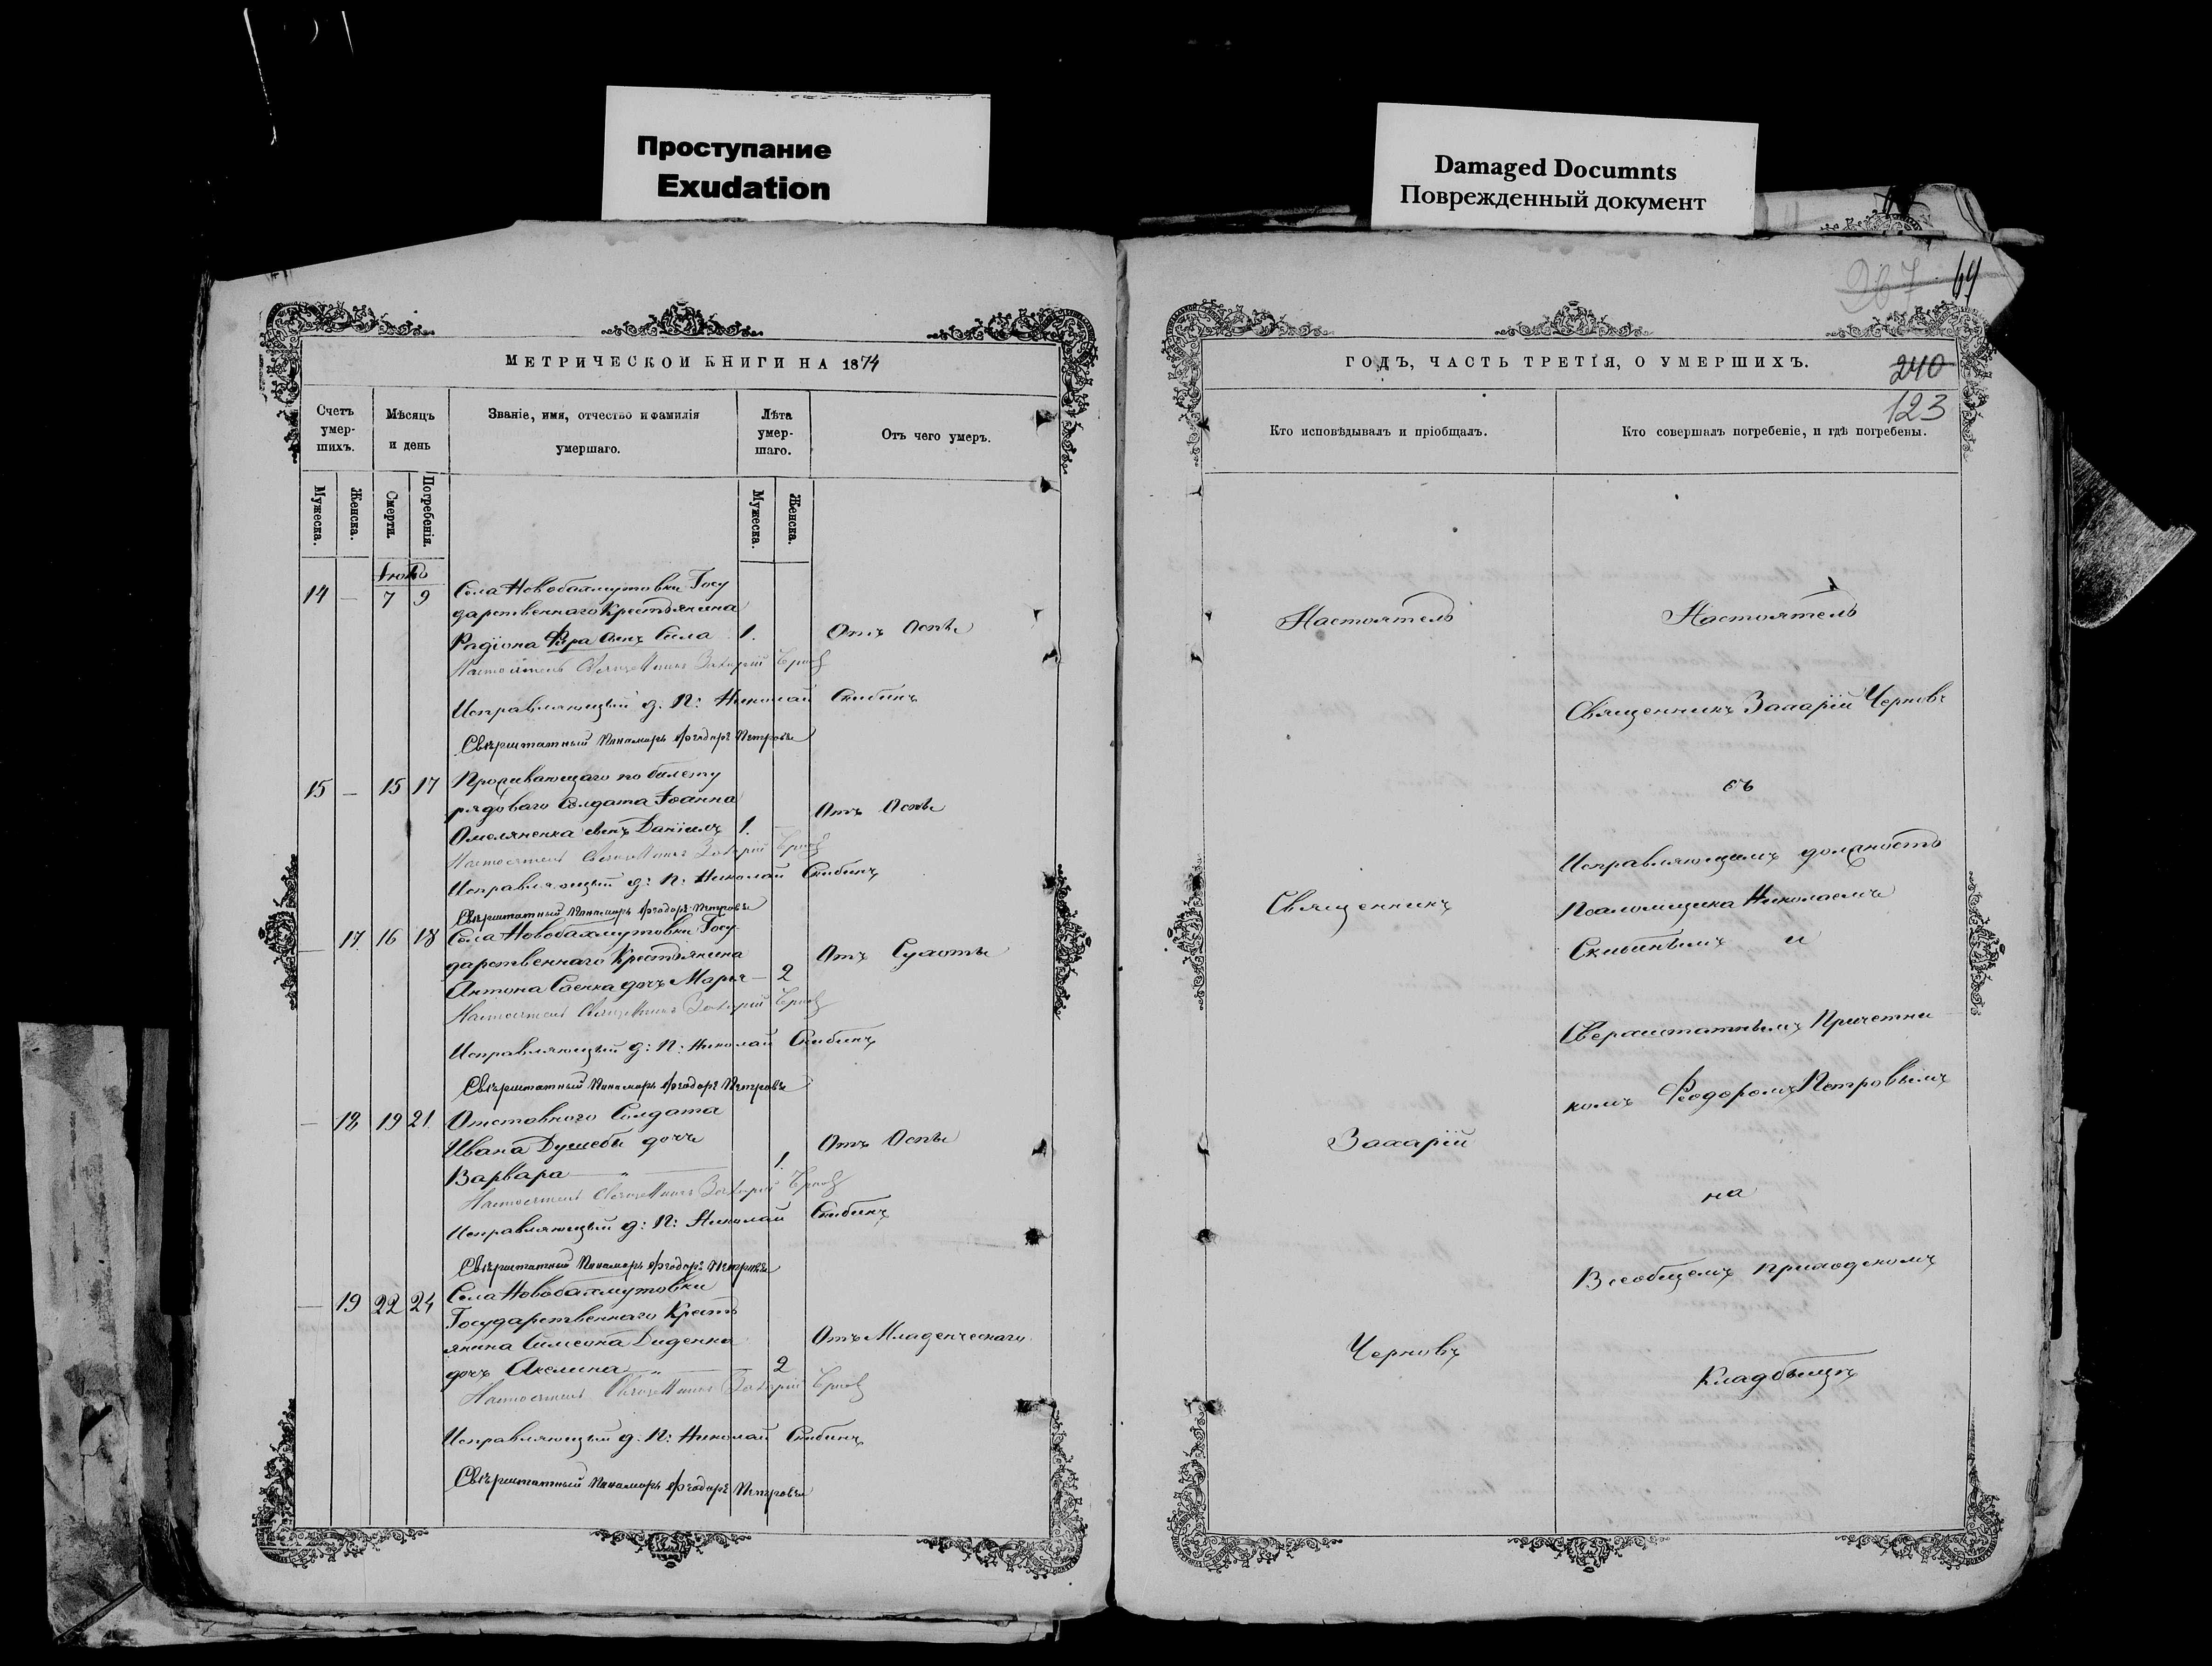 Проступание
Exudation
Damaged Documnts
Поврежденный документ
МЕТРИЧЕСКОЙ КНИГИ НА 1874
Счетъ умер-шихъ.
Мѣсяцъ и день
Званіе, имя, отчество и фамилія
умершаго.
Лѣта умер-шаго.
Отъ чего умеръ.
Мужеска.
Женска.
Смерти.
Погребенія.
Мужеска.
Женска.
14 — 7 9 Села Новобахмутовки Госу
дарственнаго Крестьянина
Радіона сынъ Сила 1. Отъ Оспы
Настоятель Священникъ Захарій Черновъ
Исправляющій д. П: Николай Скибинъ
Сверхштатный Пономарь Ѳеодоръ Петровъ
15 — 15 17 Проживающаго по билету
рядоваго Солдата Іоанна
Отъ Оспы
Омеляненка сынъ Даніилъ 1.
Настоятель Священникъ Захарій Черновъ
Исправляющій д: П: Николай Скибинъ
Сверхштатный Пономарь Ѳеодоръ Петровъ
— 17 16 18 Села Новобахмутовки Госу-
дарственнаго Крестьянина Отъ Сухоты
Антона Саенка дочь Марья — 2
Настоятель Священникъ Захарій Черновъ
Исправляющій д: П: Николай Скибинъ
Сверхштатный Пономарь Ѳеодоръ Петровъ
— 18 19 21. Отставного Солдата
Ивана дочь Отъ Оспы
Варвара 1.
Настоятель Священникъ Захарій Черновъ
Исправляющій д: П: Николай Скибинъ
Сверхштатный Пономарь Ѳеодоръ Петровъ
— 19 22 24 Села Новобахмутовки
Государственнаго Кресть
янина Симеона Диденка Отъ Младенческаго
дочь Акелина 2
Настоятель Священникъ Захарій Черновъ
Исправляющій д. П: Николай Скибинъ
Сверхштатный Пономарь Ѳеодоръ Петровъ
267 69
ГОДЪ, ЧАСТЬ ТРЕТІЯ, О УМЕРШИХЪ.
240
123
Кто исповѣдывалъ и пріобщалъ.
Кто совершалъ погребеніе, и гдѣ погребены.
Настоятель
Священникъ
Захарій
Черновъ
Настоятель
Священникъ Захарій Черновъ
съ
Исправляющимъ должность
Псаломщика Николаемъ
Скибинымъ и
Сверхштатнымъ Причетни
комъ Ѳеодоромъ Петровымъ
на
Всеобщемъ приходскомъ
Кладбищѣ